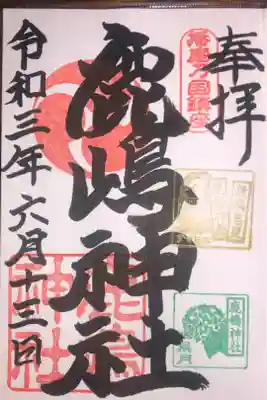 奉拝
鹿嶋神社
令和三年六月十三日
鹿嶋神社
鹿嶋神社